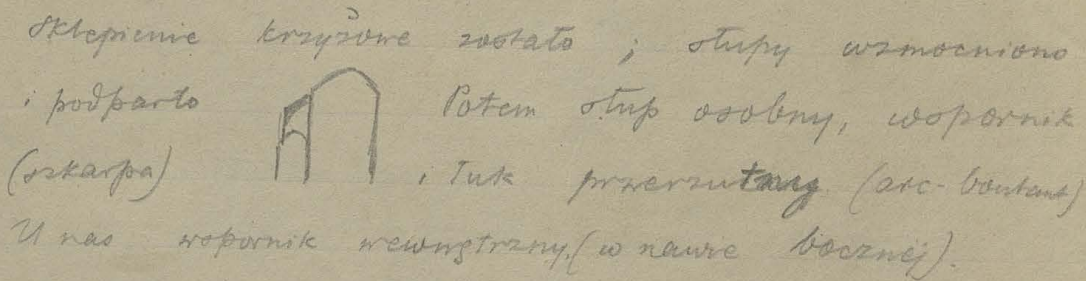 Sklepienie krzyżowe zostało ; słupy wzmocniono
i podparto Potem słup osobny, wspornik
(szkarpa) i łuk przerzutny (arc-boutant)
U nas wspornik wewnętrzny. (w nawie bocznéj).